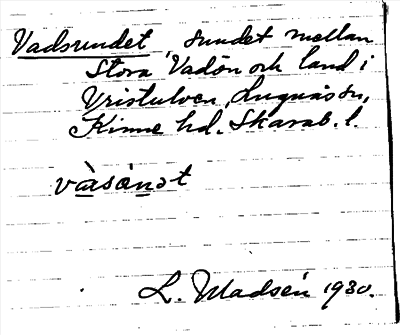 Vadsundet, sundet mellan
Stora Vadön och land i
Ullervad, sn,
Kinne hd. Skarab. l.
vàsónət
L. Madsén 1930.